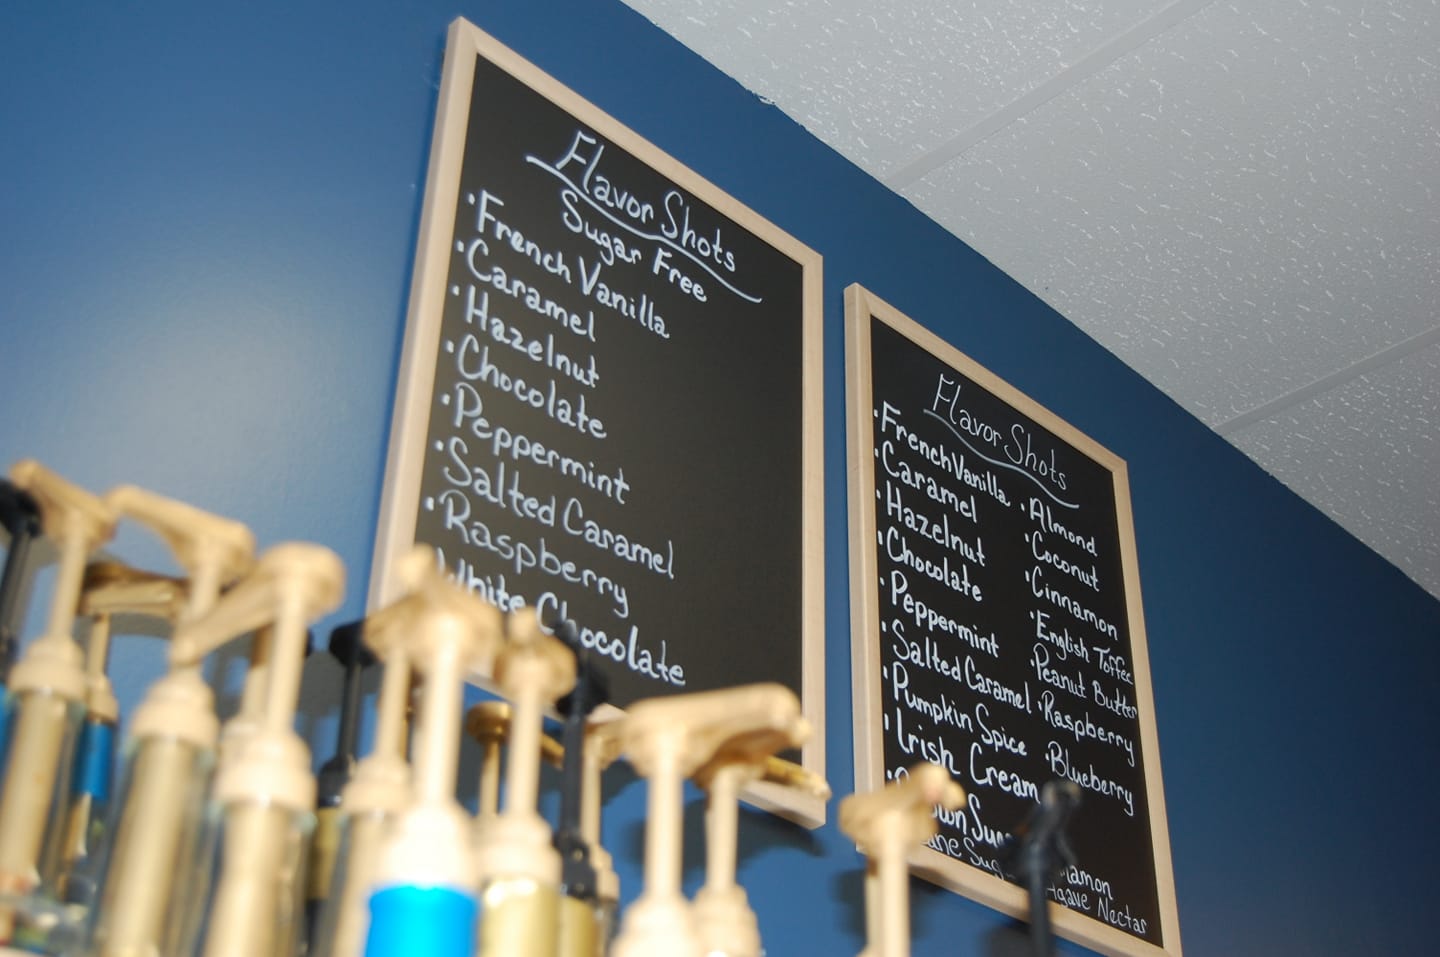 Flavor Shots
Sugar Free
· French Vanilla
· Caramel
· Hazelnut
· Chocolate
· Peppermint
· Salted Caramel
· Raspberry
White Chocolate
Flavor Shots
· French Vanilla
· Caramel
· Hazelnut
· Chocolate
· Peppermint
· Salted Caramel
· Pumpkin Spice
· Irish Cream
· Almond
· Coconut
· Cinnamon
· English Toffee
· Peanut Butter
· Raspberry
· Blueberry
Agave Nectar